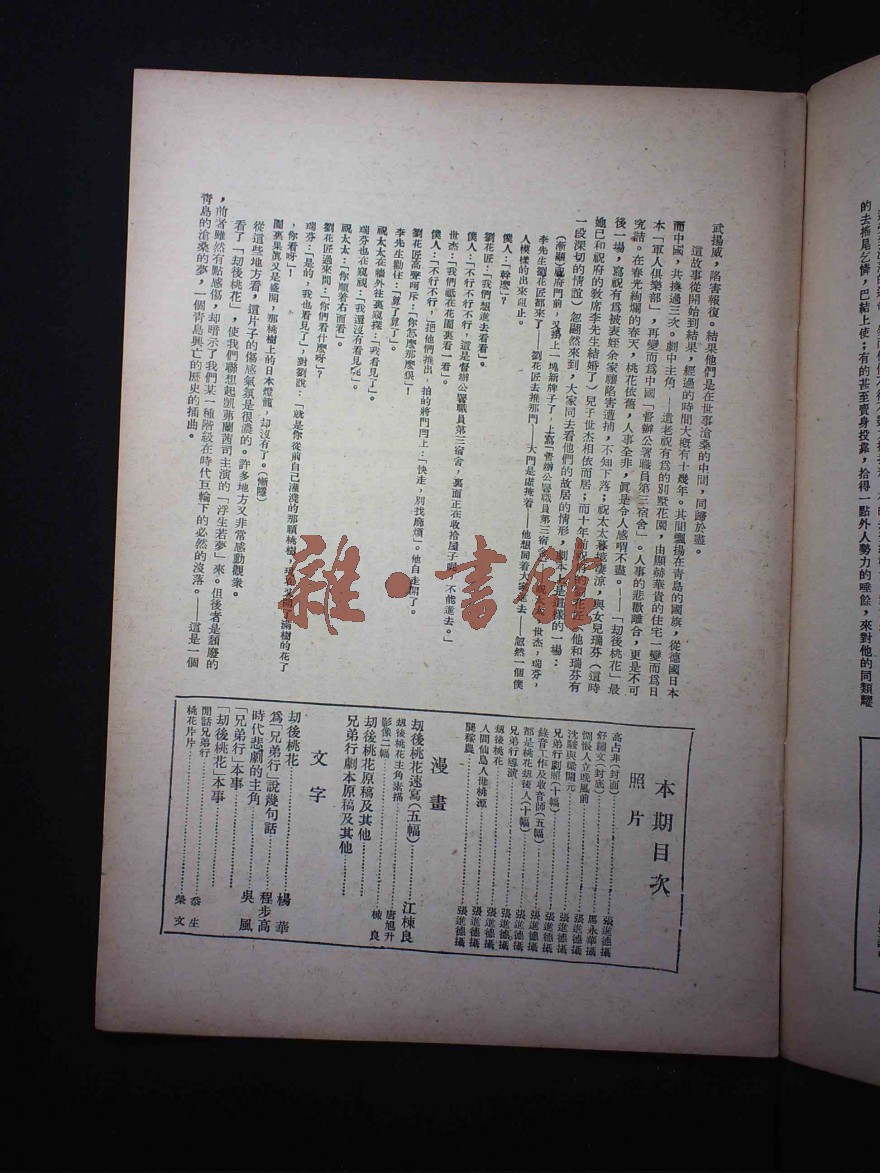 武揚威,陷害報復。結果他們是在世事滄桑的中間,同歸於盡。
這故事從開始到結果,經過的時間大概有十幾年。其間飄揚在青島的國旗,從德國日本
而中國,共換過三次。劇中主角——遺老祝有爲的別墅花園,由顯赫華貴的住宅一變而爲日
本「軍人俱樂部」,再變而爲中國「督辦公署職員第三宿舍」。人事的悲歡離合,更是不可
究詰。在春光絢爛的春天,桃花依舊,人事全非,眞是令人感喟不盡。——「刧後桃花」最
後一場,寫祝有爲被表姪余家驥陷害遭捕,不知下落;祝太太暮境凄涼,與女兒瑞芬(這時
她已和祝府的敎席李先生結婚了)兒子世杰相依而居;而十年前祝府的劉花匠(他和瑞芬有
一段深切的情誼)忽翩然來到,大家同去看他們的故居的情形,劇本上是這樣的一場:
(漸顯)祝府門前,又換上一塊新牌子了,上寫「督辦公署職員第三宿舍」祝太太,世杰,瑞芬,
李先生劉花匠都來了——劉花匠去推那門——大門是虛掩着——他想同着大家進去——忽然一個僕
人模樣的出來阻止。
僕人:「幹麽」?
劉花匠:「我們想進去看看」。
僕人:「不行不行不行,這是督辦公署職員第三宿舍,裏面正在收拾屋子呢,不能進去。」
世杰:「我們祗在花園裏看一看」。
僕人:「不行不行」,把他們推出,拍的將門閂上:「快走,別找麻煩」。他自走開了。
劉花匠高聲呵斥:「你怎麽那麽狠」!
李先生勸住:「算了算了」。
祝太太在牆外往裏窺探:「我看見了」。
瑞芬也在窺視:「我還沒有看見呢」。
祝太太:「你順着右面看」。
劉花匠過來問:「你們看什麽呀」?
瑞芬:「是的,我也看見了」,對劉說:「就是你從前自己灌澆的那顆桃樹,現在又開了滿樹的花了
,你看呀」!
園裏果眞又是盛開,那桃樹上的日本燈籠,却沒有了。(漸隱)
從這些地方看,這片子的傷感氣氛是很濃的。許多地方又非常感動觀衆。
看了「刧後桃花」,使我們聯想起凱弗蘭茜司主演的「浮生若夢」來。但後者是頹廢的
,前者雖然有點感傷,却暗示了我們某一種階級在時代巨輪下的必然的沒落。——這是一個
靑島的滄桑的夢,一個靑島興亡的歷史的插曲。
本期目次
照片
高占非(封面)……張進德攝
舒繡文(封底)……馬永華攝
惆悵人立晚風前……張進德攝
沈駿與梁開元……張進德攝
兄弟行劇照(十幅)……張進德攝
錄音工作及收音師(五幅)……張進德攝
都是桃花刧後人(十幅)……張進德攝
兄弟行導演……張進德攝
刧後桃花……張進德攝
人間仙島人世桃源……張進德攝
龔稼農……張進德攝
漫畫
刧後桃花速寫(五幅)……江棟良
刧後桃花主角素描……唐旭升
影像二幅……棟良
刧後桃花原稿及其他……
兄弟行劇本原稿及其他……
文字
刧後桃花……楊華
爲「兄弟行」說幾句話……程步高
時代悲劇的主角……吳風
「兄弟行」本事……
「刧後桃花」本事……
閒話兄弟行……岙生
桃花片片……榮文
的去搖尾乞憐,巴結上使;有的甚至賣身投靠,拾得一點外人勢力的唾餘,來對他的同類耀
雜·書館